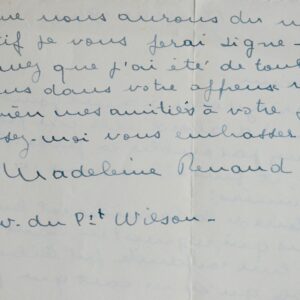 ue nous aurons du n
tif je vous ferai signe -
nez que j'ai été de tout
us dans votre affreuse
ien mes amitiés à votre
sez-moi vous embrasser
Madeleine Renaud
v. du Pt Wilson -